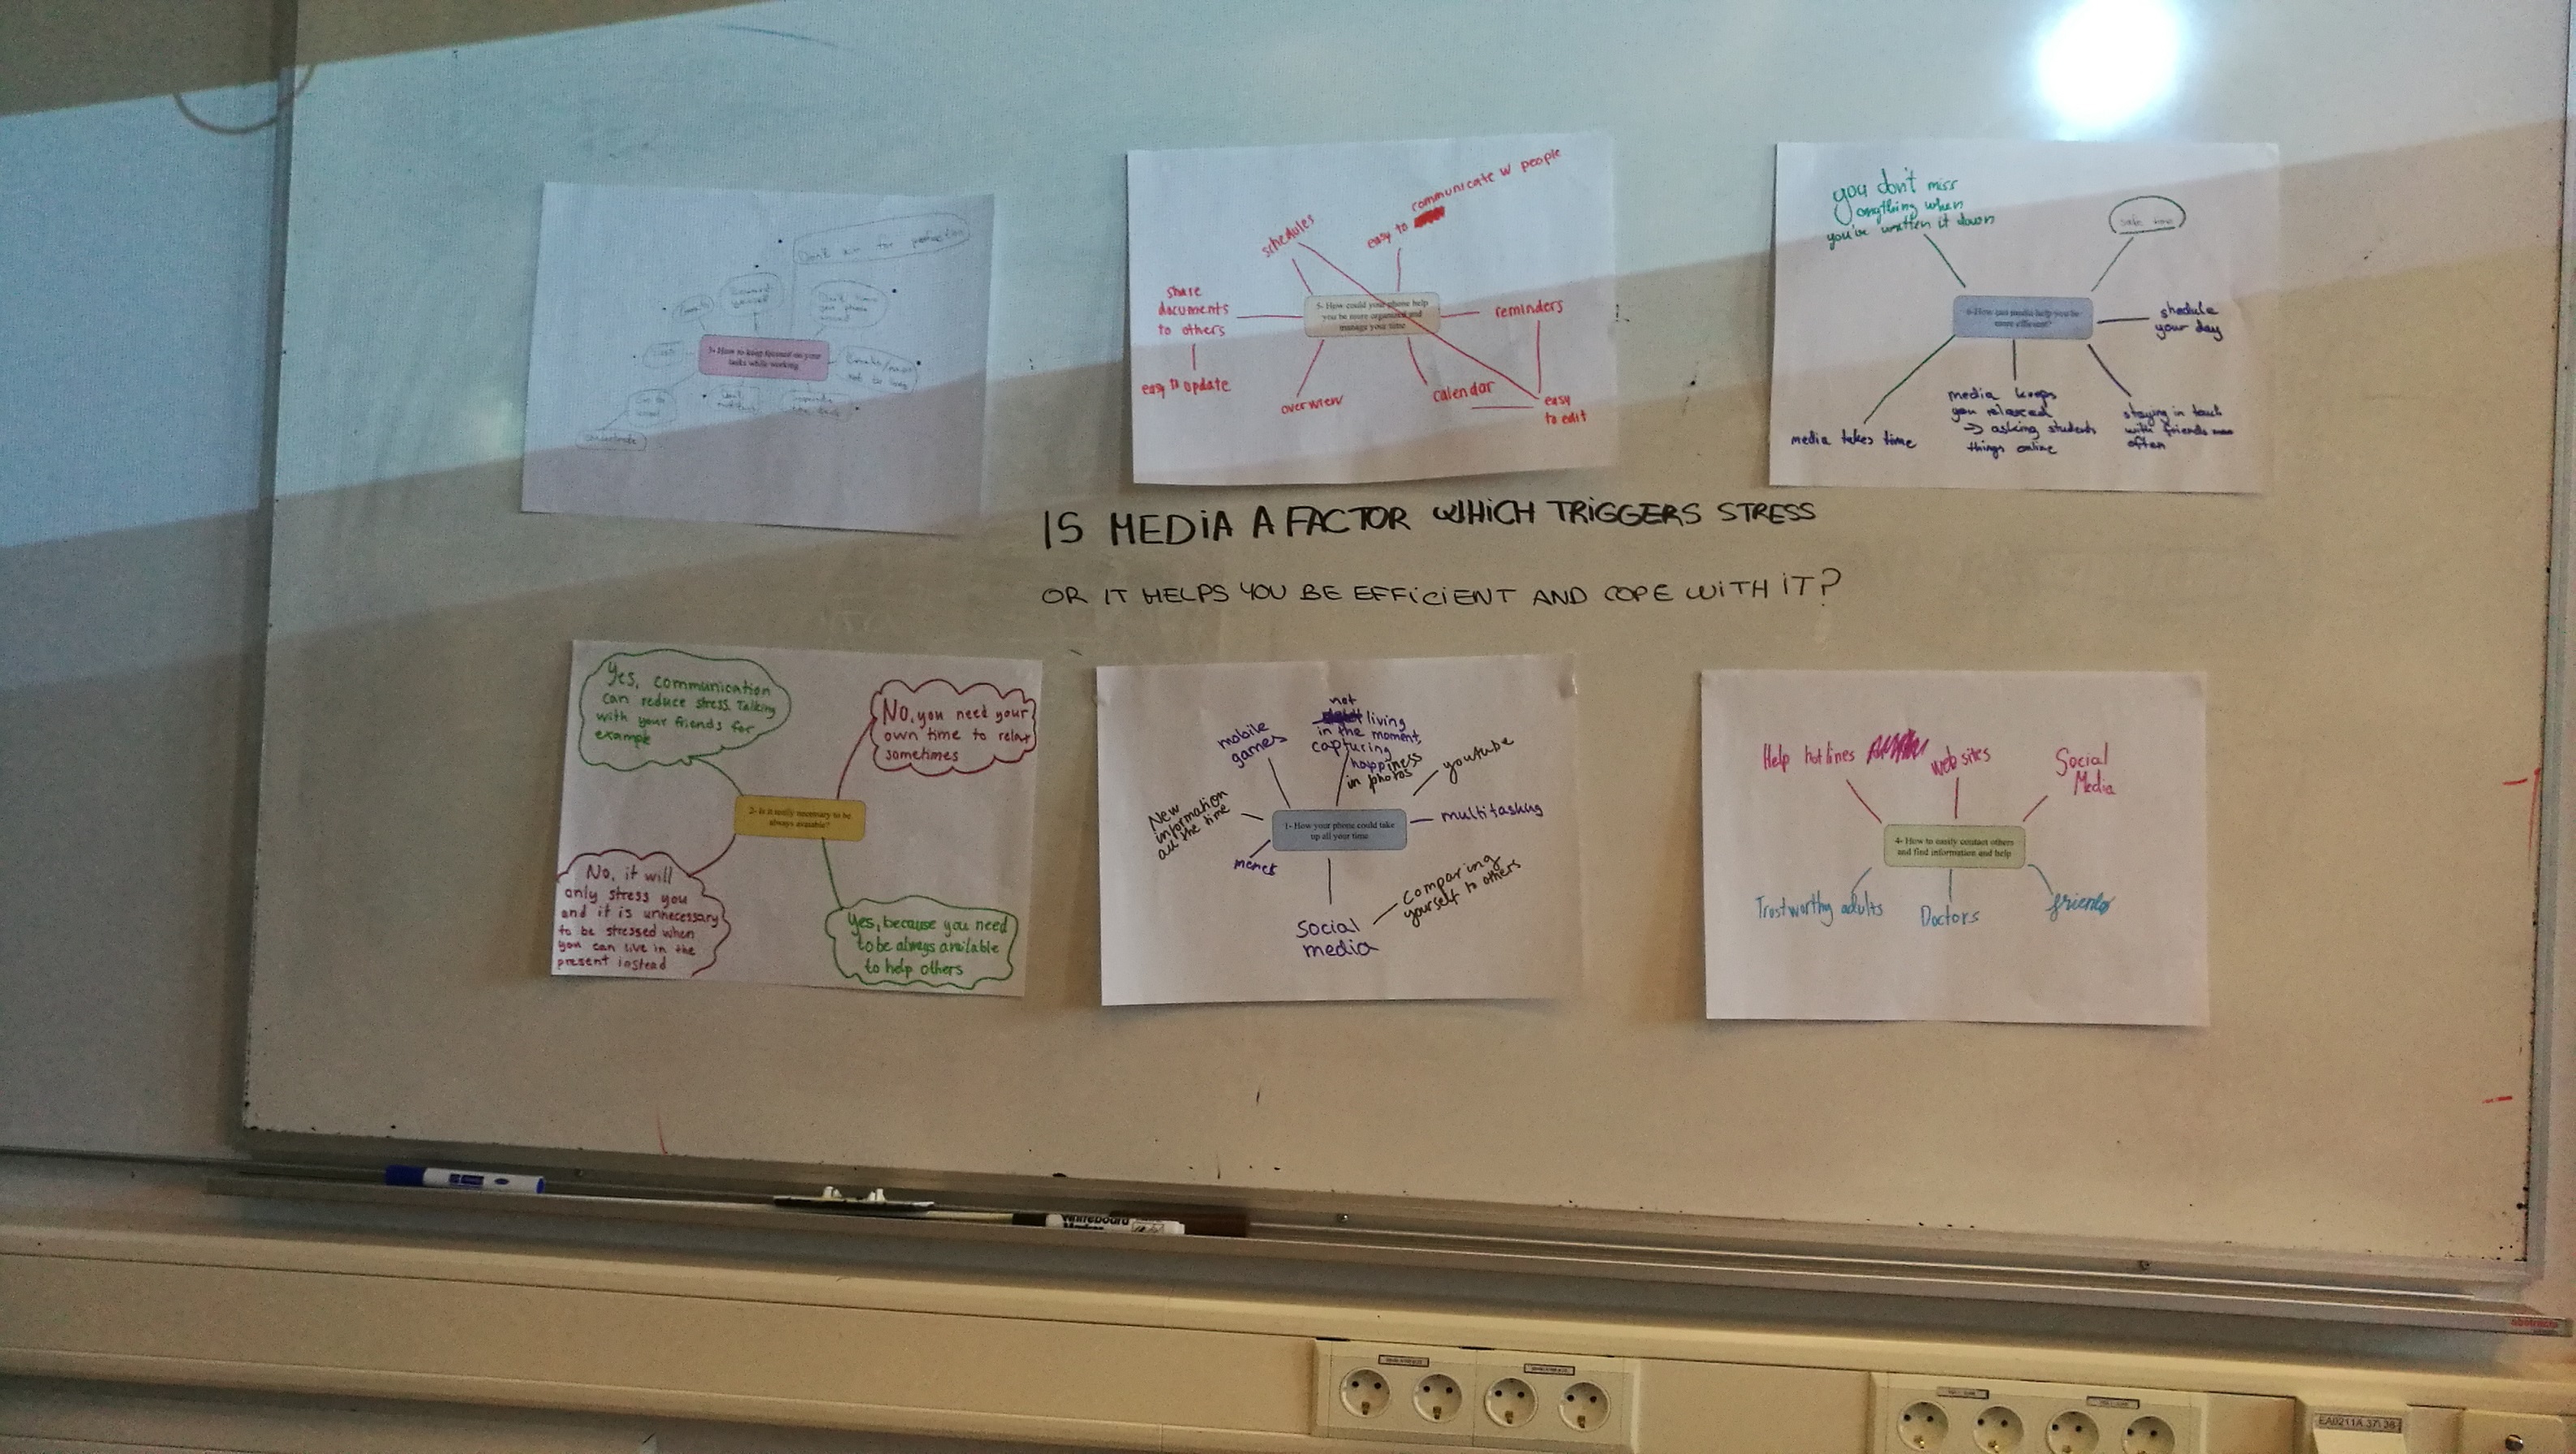 Don't aim for perfection
3- How to keep focused on your
tasks while working
communicate w/ people
easy to
schedules
share
documents
to others
easy to update
5- How could your phone help
you be more organized and
manage your time
reminders
overview
calendar
easy
to edit
you don't miss
anything when
you've written it down
6-How can media help you be
more efficient?
shedule
your day
media takes time
media keeps
you relaxed
→ asking students
things online
staying in touch
with friends
often
IS MEDIA A FACTOR WHICH TRIGGERS STRESS
OR IT HELPS YOU BE EFFICIENT AND COPE WITH IT?
Yes, communication
can reduce stress. Talking
with your friends for
example
No, you need your
own time to relax
sometimes
2- Is it really necessary to be
always available?
No, it will
only stress you
and it is unnecessary
to be stressed when
you can live in the
present instead
Yes, because you need
to be always available
to help others
mobile
games
not
living
in the moment,
capturing
happiness
in photos
youtube
New
information
all the time
memes
1- How your phone could take
up all your time
multitasking
comparing
yourself to others
Social
media
Help hotlines
websites
Social
Media
4- How to easily contact others
and find information and help
Trustworthy adults
Doctors
friends
Whiteboard
Marker
EA0211A 37\38